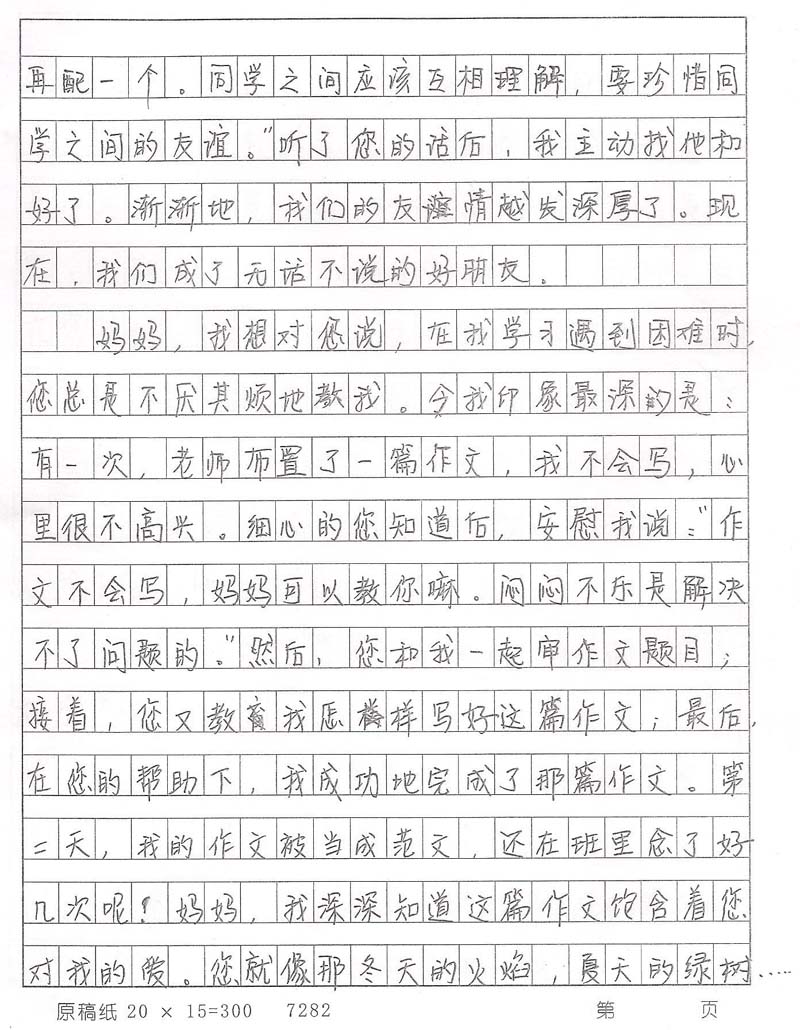 再配一个。同学之间应该互相理解，要珍惜同
学之间的友谊。”听了您的话后，我主动找他和
好了。渐渐地，我们的友谊情越发深厚了。现
在，我们成了无话不说的好朋友。
妈妈，我想对您说，在我学习遇到困难时，
您总是不厌其烦地教我。令我印象最深的是：
有一次，老师布置了一篇作文，我不会写，心
里很不高兴。细心的您知道后，安慰我说：“作
文不会写，妈妈可以教你嘛。闷闷不乐是解决
不了问题的。”然后，您和我一起审作文题目；
接着，您又教育我怎样写好这篇作文；最后，
在您的帮助下，我成功地完成了那篇作文。第
二天，我的作文被当成范文，还在班里念了好
几次呢！妈妈，我深深知道这篇作文饱含着您
对我的爱。您就像那冬天的火焰，夏天的绿树……
原稿纸 20 × 15=300 7282 第 页